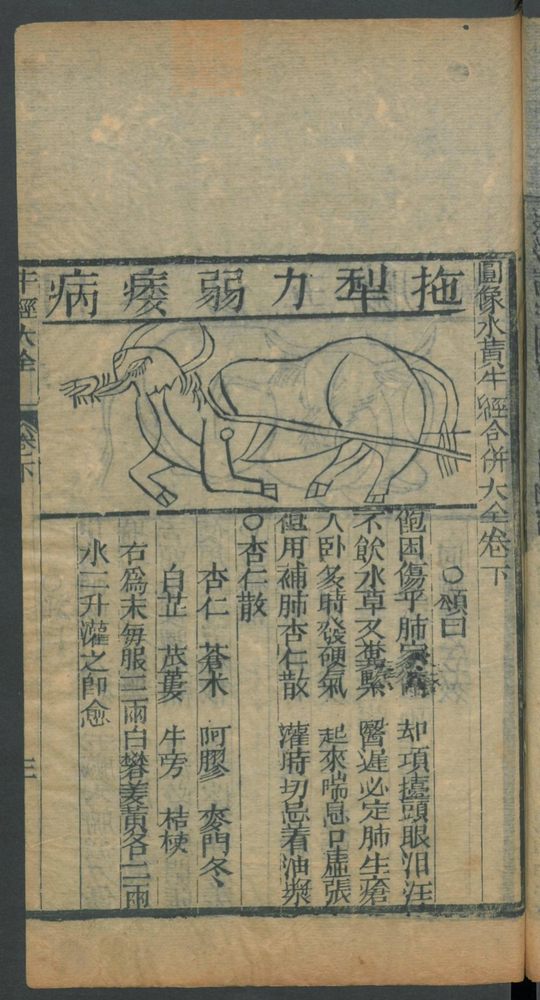 圖像水黃牛經合併大全卷下
拖犁力弱痿病
○頌曰
飽困傷乎肺 却項擡頭眼泪汪
不飲水草又糞緊 醫遲必定肺生瘡
久卧多時發硬氣 起來喘息口虛張
但用補肺杏仁散 灌時切忌着油漿
○杏仁散
杏仁 蒼木 阿膠 麥門冬、
白芷 菰蔞 牛旁 桔梗
右爲末每服三兩白礬姜黃各二兩
水二升灌之即愈
牛經大全 卷下 三